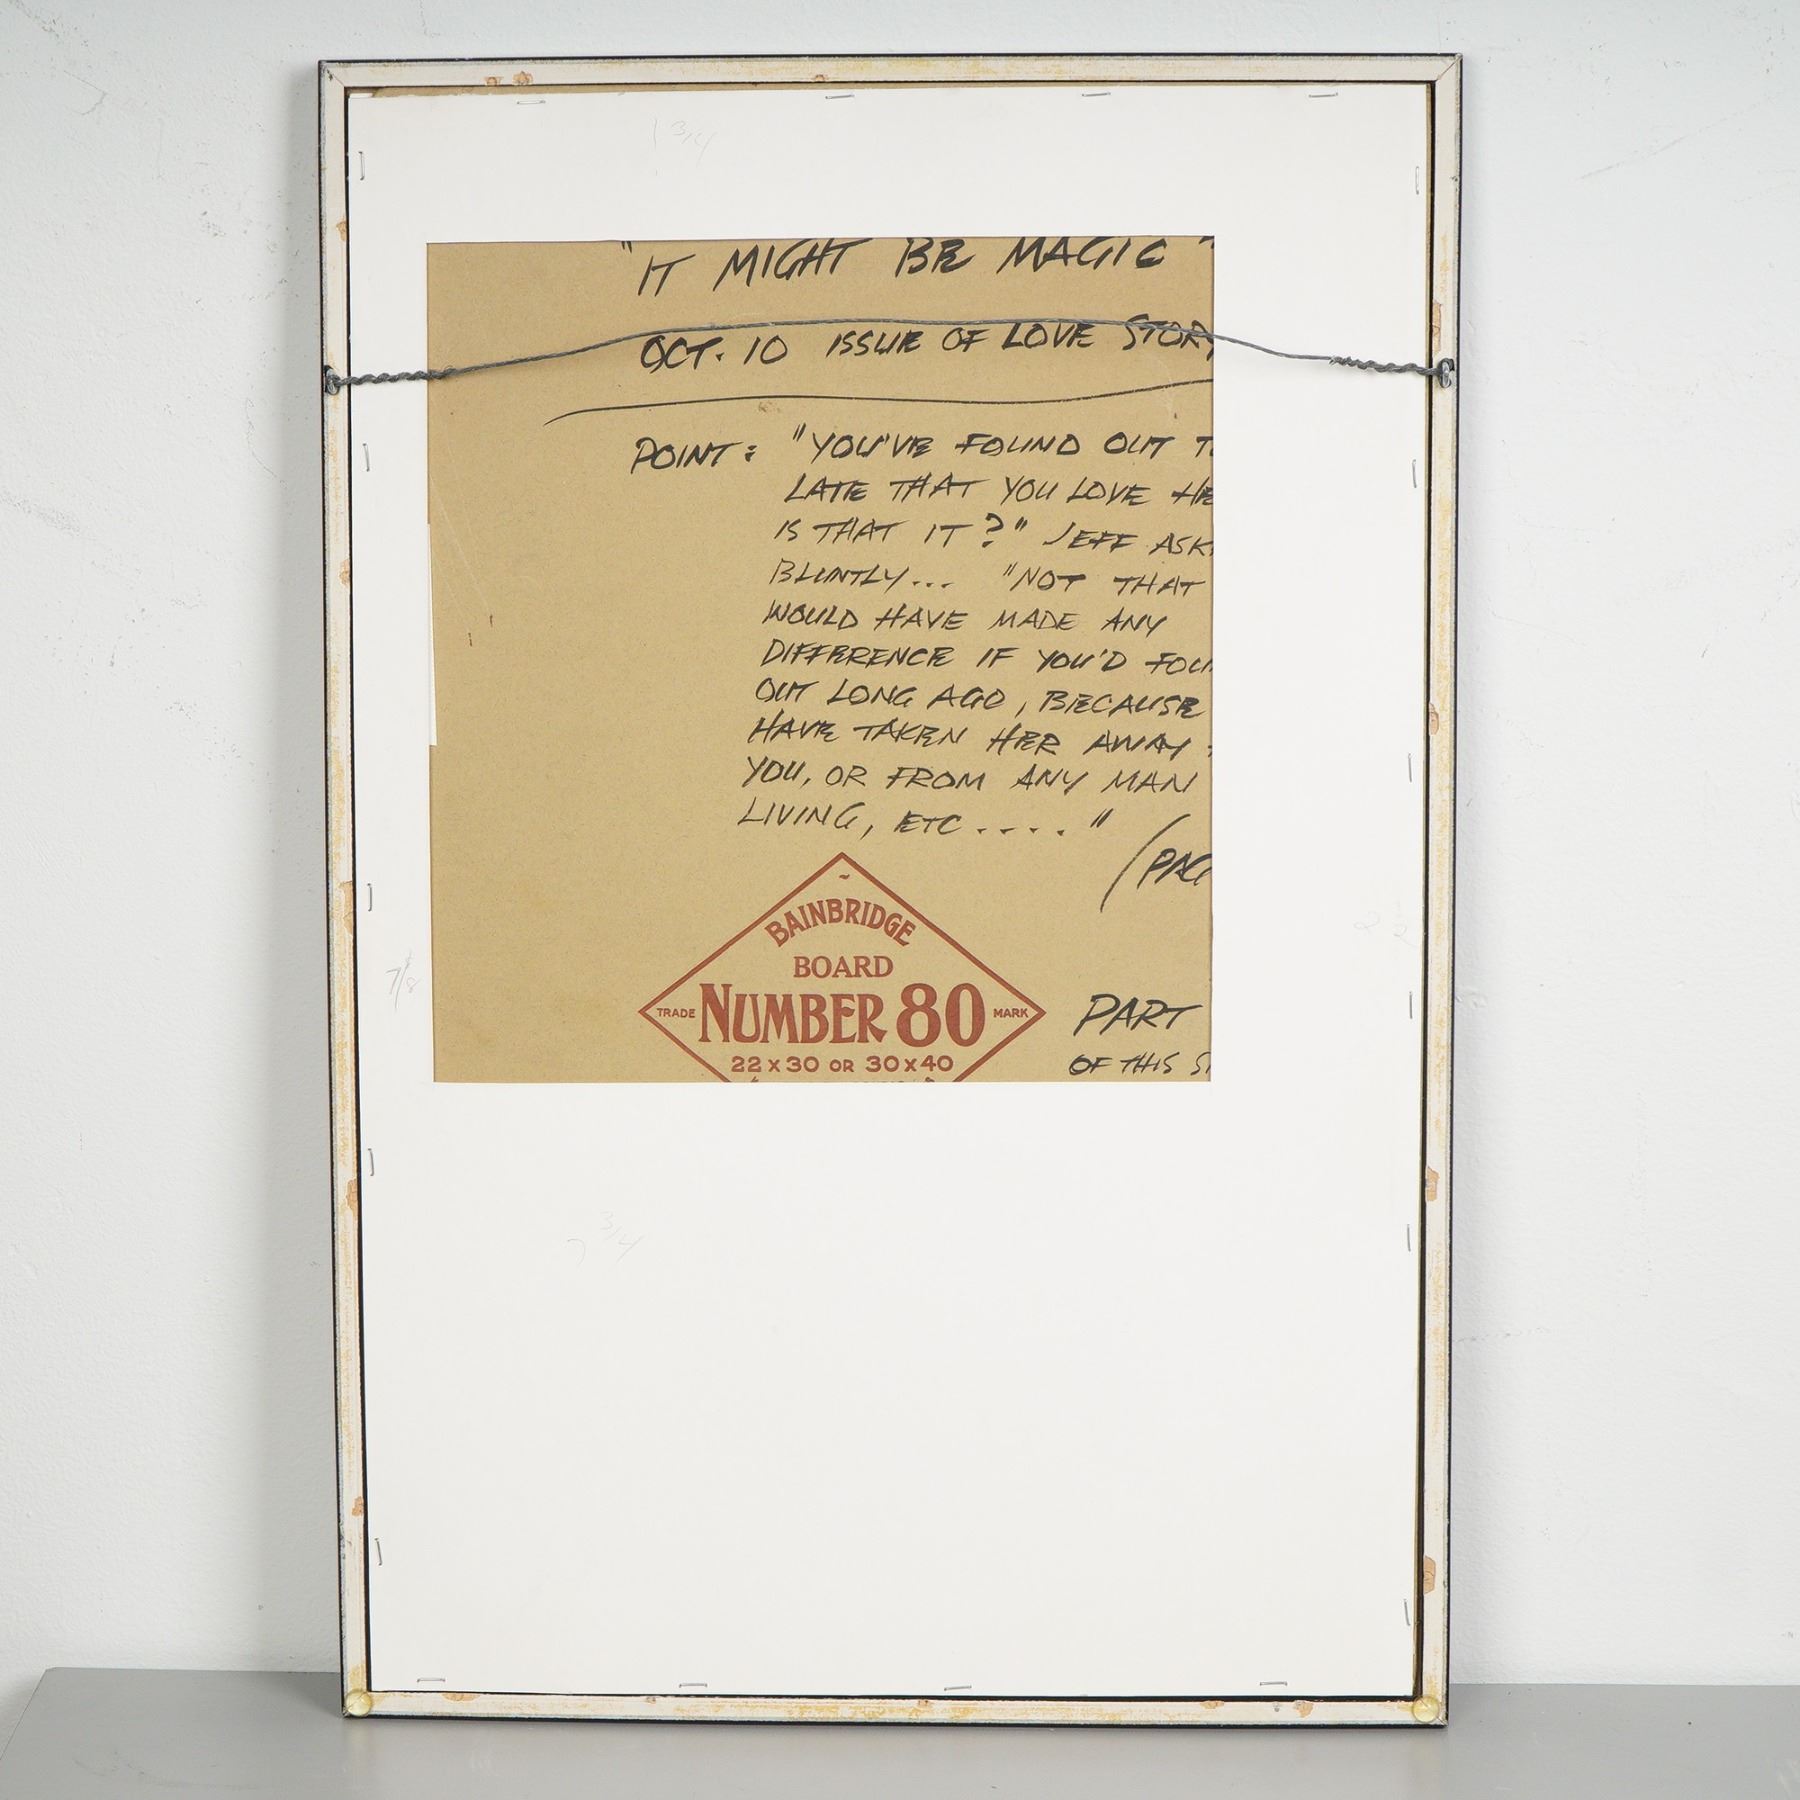 1 3/4
"IT MIGHT BE MAGIC"
OCT. 10 ISSUE OF LOVE STORY
POINT: "YOU'VE FOUND OUT T
LATE THAT YOU LOVE HE
IS THAT IT?" JEFF ASK
BLUNTLY... "NOT THAT
WOULD HAVE MADE ANY
DIFFERENCE IF YOU'D FOU
OUT LONG AGO, BECAUSE
HAVE TAKEN HER AWAY
YOU, OR FROM ANY MAN
LIVING, ETC....."
(PAG
BAINBRIDGE
BOARD
TRADE NUMBER 80 MARK
22 x 30 OR 30 x 40
PART
OF THIS S
7/8
2 1/2
7 3/4